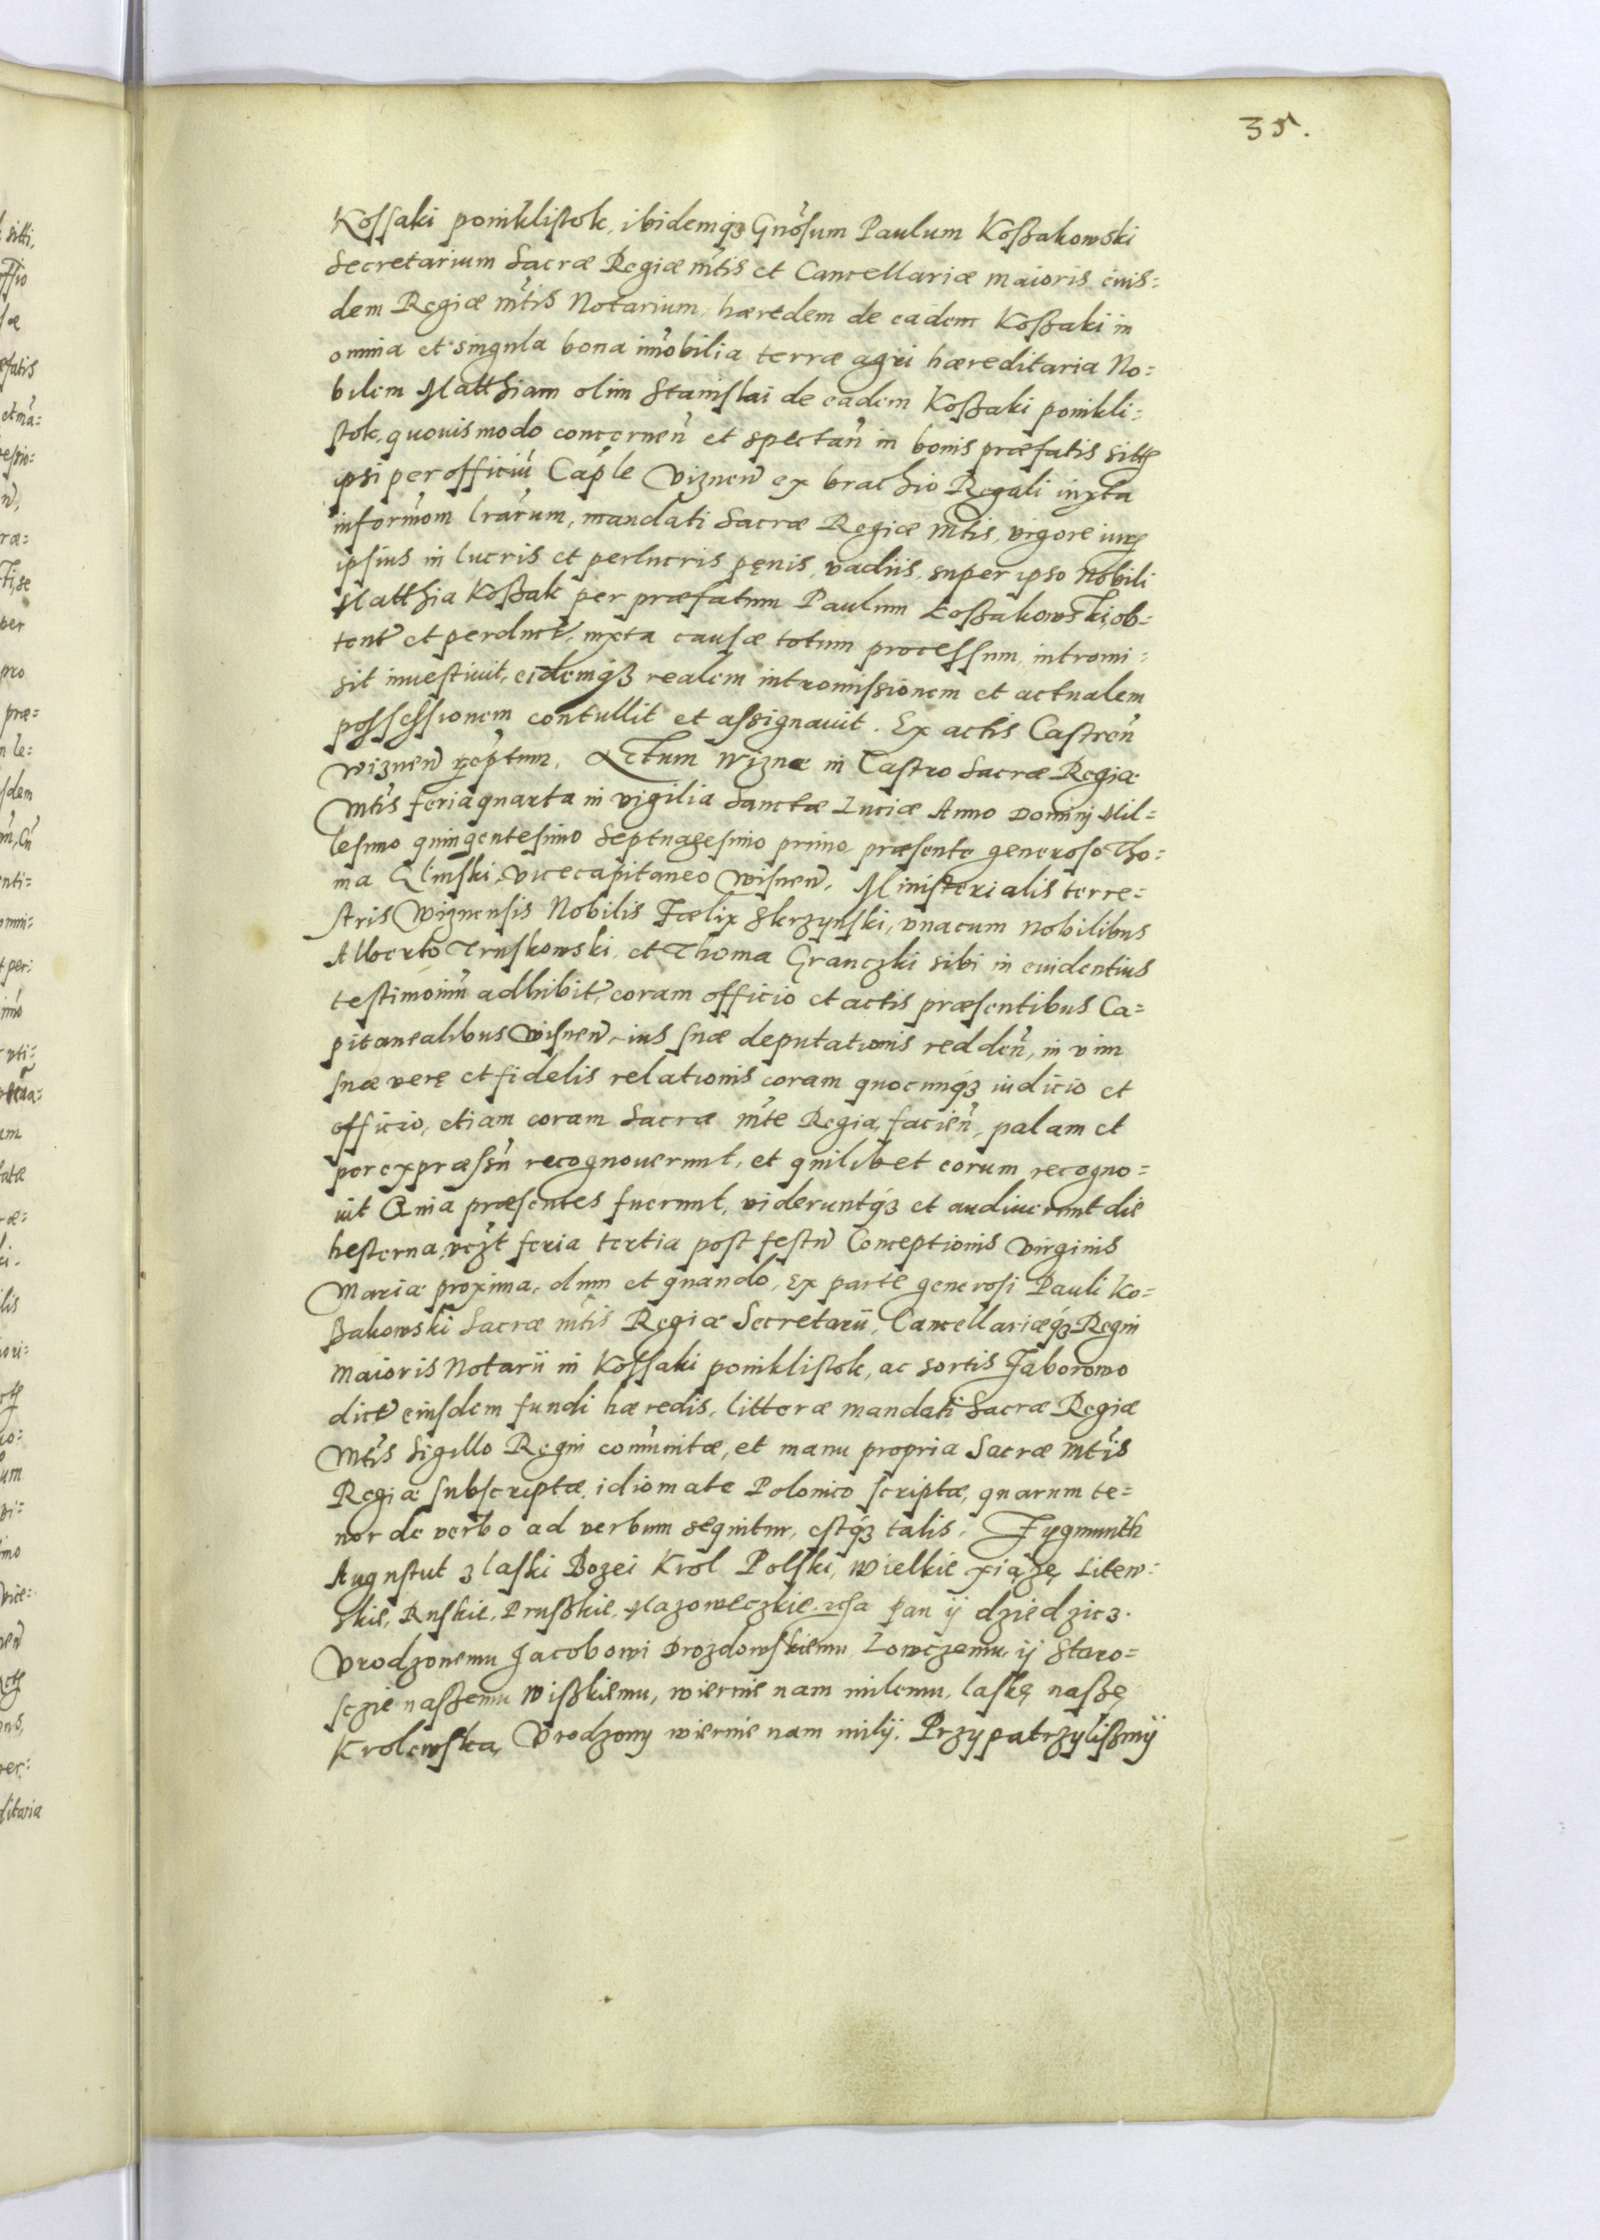 35.
Kossaki poniklistok, ibidemq3 Gnosum Paulum Koßakowski
Secretarium Sacræ Regiæ mtis et Cancellariæ maioris eius-
dem Regiæ mtis Notarium, hæredem de eadem Koßaki in
omnia et singula bona imobilia terræ agri hæreditaria No-
bilem Matthiam olim Stanislai de eadem Koßaki ponikli-
stok, quouismodo concernen et spectan in bonis præfatis
ipsi per officiu Caple Viznen ex brachio Regali iuxta
informom lrarum, mandati Sacræ Regiæ mtis, vigore
ipsius in lucris et perlucris pęnis, vadiis, super ipso Nobili
Matthia Koßak per præfatum Paulum Koßakowski, ob-
tent et perduct, iuxta causæ totum processum, intromi-
sit inuestiuit, eidemq3 realem intromissionem et actualem
possessionem contullit et assignauit. Ex actis Castren
Wiznen reptum. Actum Wiznæ in Castro Sacræ Regiæ
Mtis feria quarta in vigilia Sanctæ Luciæ Anno Dominij Mil-
lesimo quingentesimo Septuagesimo primo, præsente generoso Tho-
ma Glinski, vicecapitaneo Wisnen, Ministerialis terre-
stris Wiznensis Nobilis Fælix Skrzynski, vnacum Nobilibus
Alberto Truskowski, et Thoma Granczki sibi in euidentius
testimoniu adhibit, coram officio et actis præsentibus Ca-
pitanealibus Wisnen, ius suæ deputationis redden, in vim
suæ verę et fidelis relationis coram quocunq3 iudicio et
officio, etiam coram Sacra mte Regia facien, palam et
per expræssu recognouerunt, et quilibet eorum recogno-
uit Quia præsentes fuerunt, videruntq3 et audiuerunt die
hesterna, vezt feria tertia post festu Conceptionis Virginis
Mariæ proxima, dum et quando, Ex parte generosi Pauli Ko-
ßakowski Sacræ mtis Regiæ Secretarii, Cancellariæq3 Regni
Maioris Notarii in Kossaki poniklistok, ac sortis Jaborowo
dict eiusdem fundi hæredis, litteræ mandati Sacræ Regiæ
Mtis Sigillo Regni comunitæ, et manu propria Sacræ mtis
Regiæ subscriptæ, idiomate Polonico scriptæ, quarum te-
nor de verbo ad verbum sequitur, estq3 talis. Zygmunth
Augustut z laski Bozei Krol Polski, Wielkie xiązę Litew-
skie, Ruskie, Prußkie, Mazoweczkie pan ij dziedzicz.
Vrodzonemu Jacobowi Drozdowskiemu Lowczemu, ij Staro-
sczie naßemu Wißkiemu, wiernie nam milemu, laskę naßę
Krolewska, Vrodzony wiernie nam milij. Przypatrzylismij